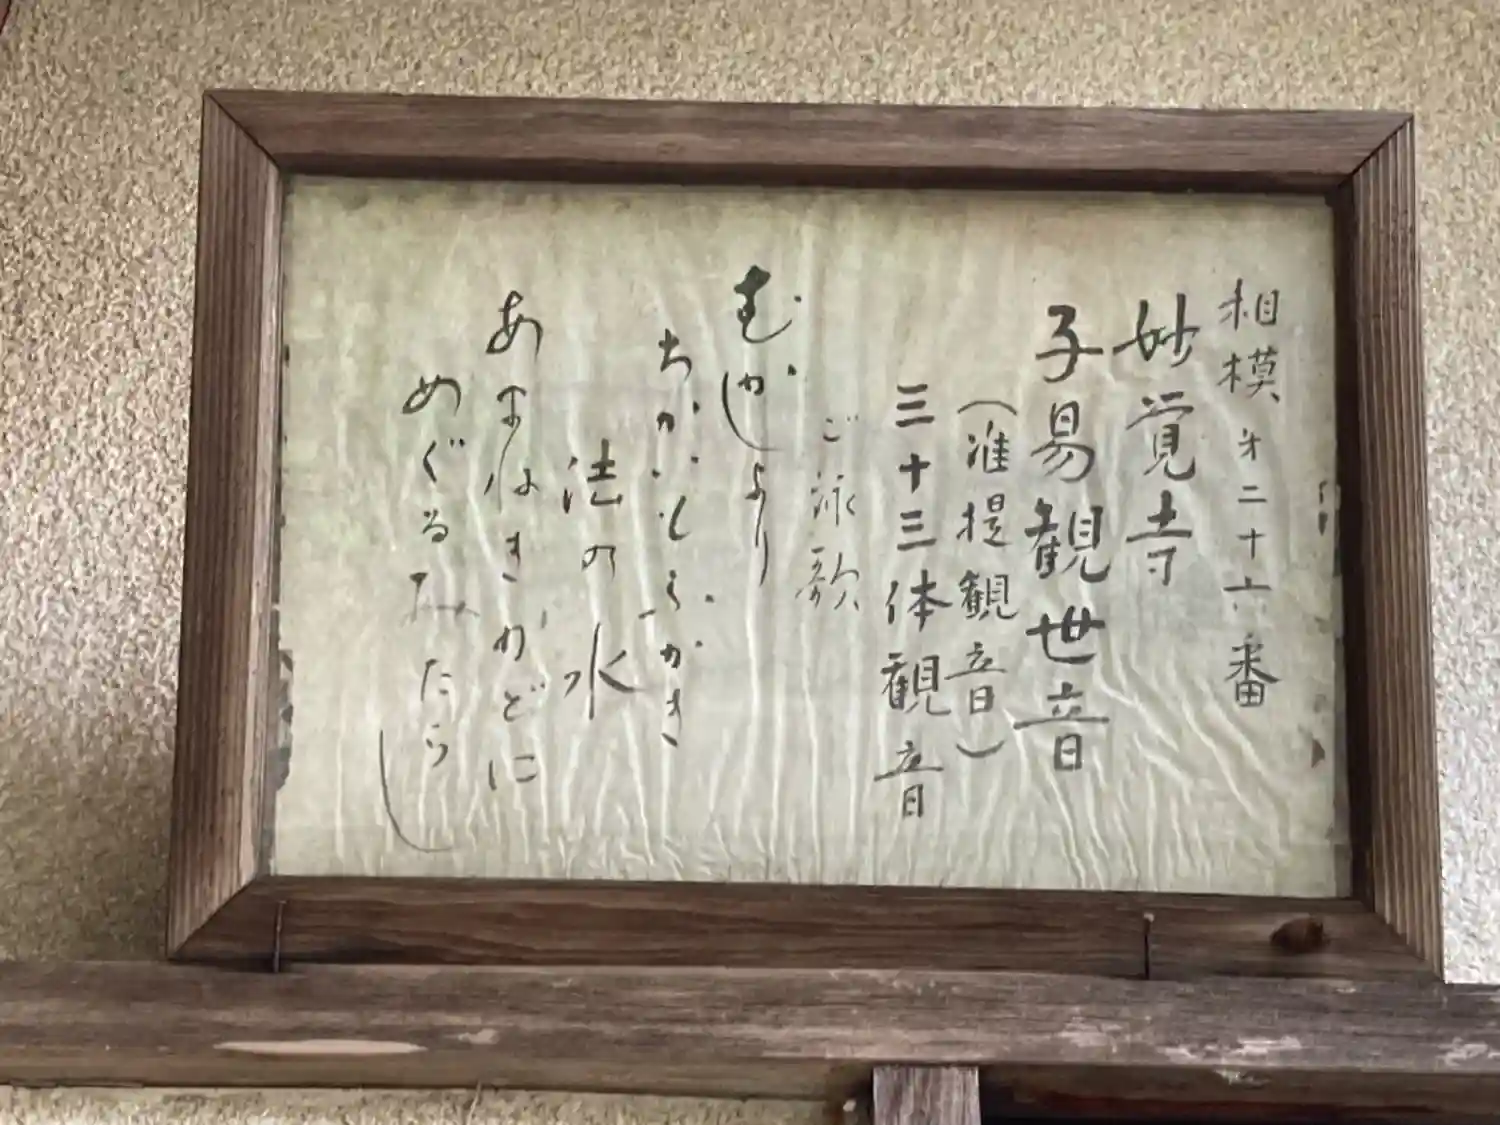 相模才二十六番
妙覚寺
子易観世音
（准提観音）
三十三体観音
ご詠歌
むかしより
ちかいもふかき
法の水
あまねきかどに
めぐるみたらし